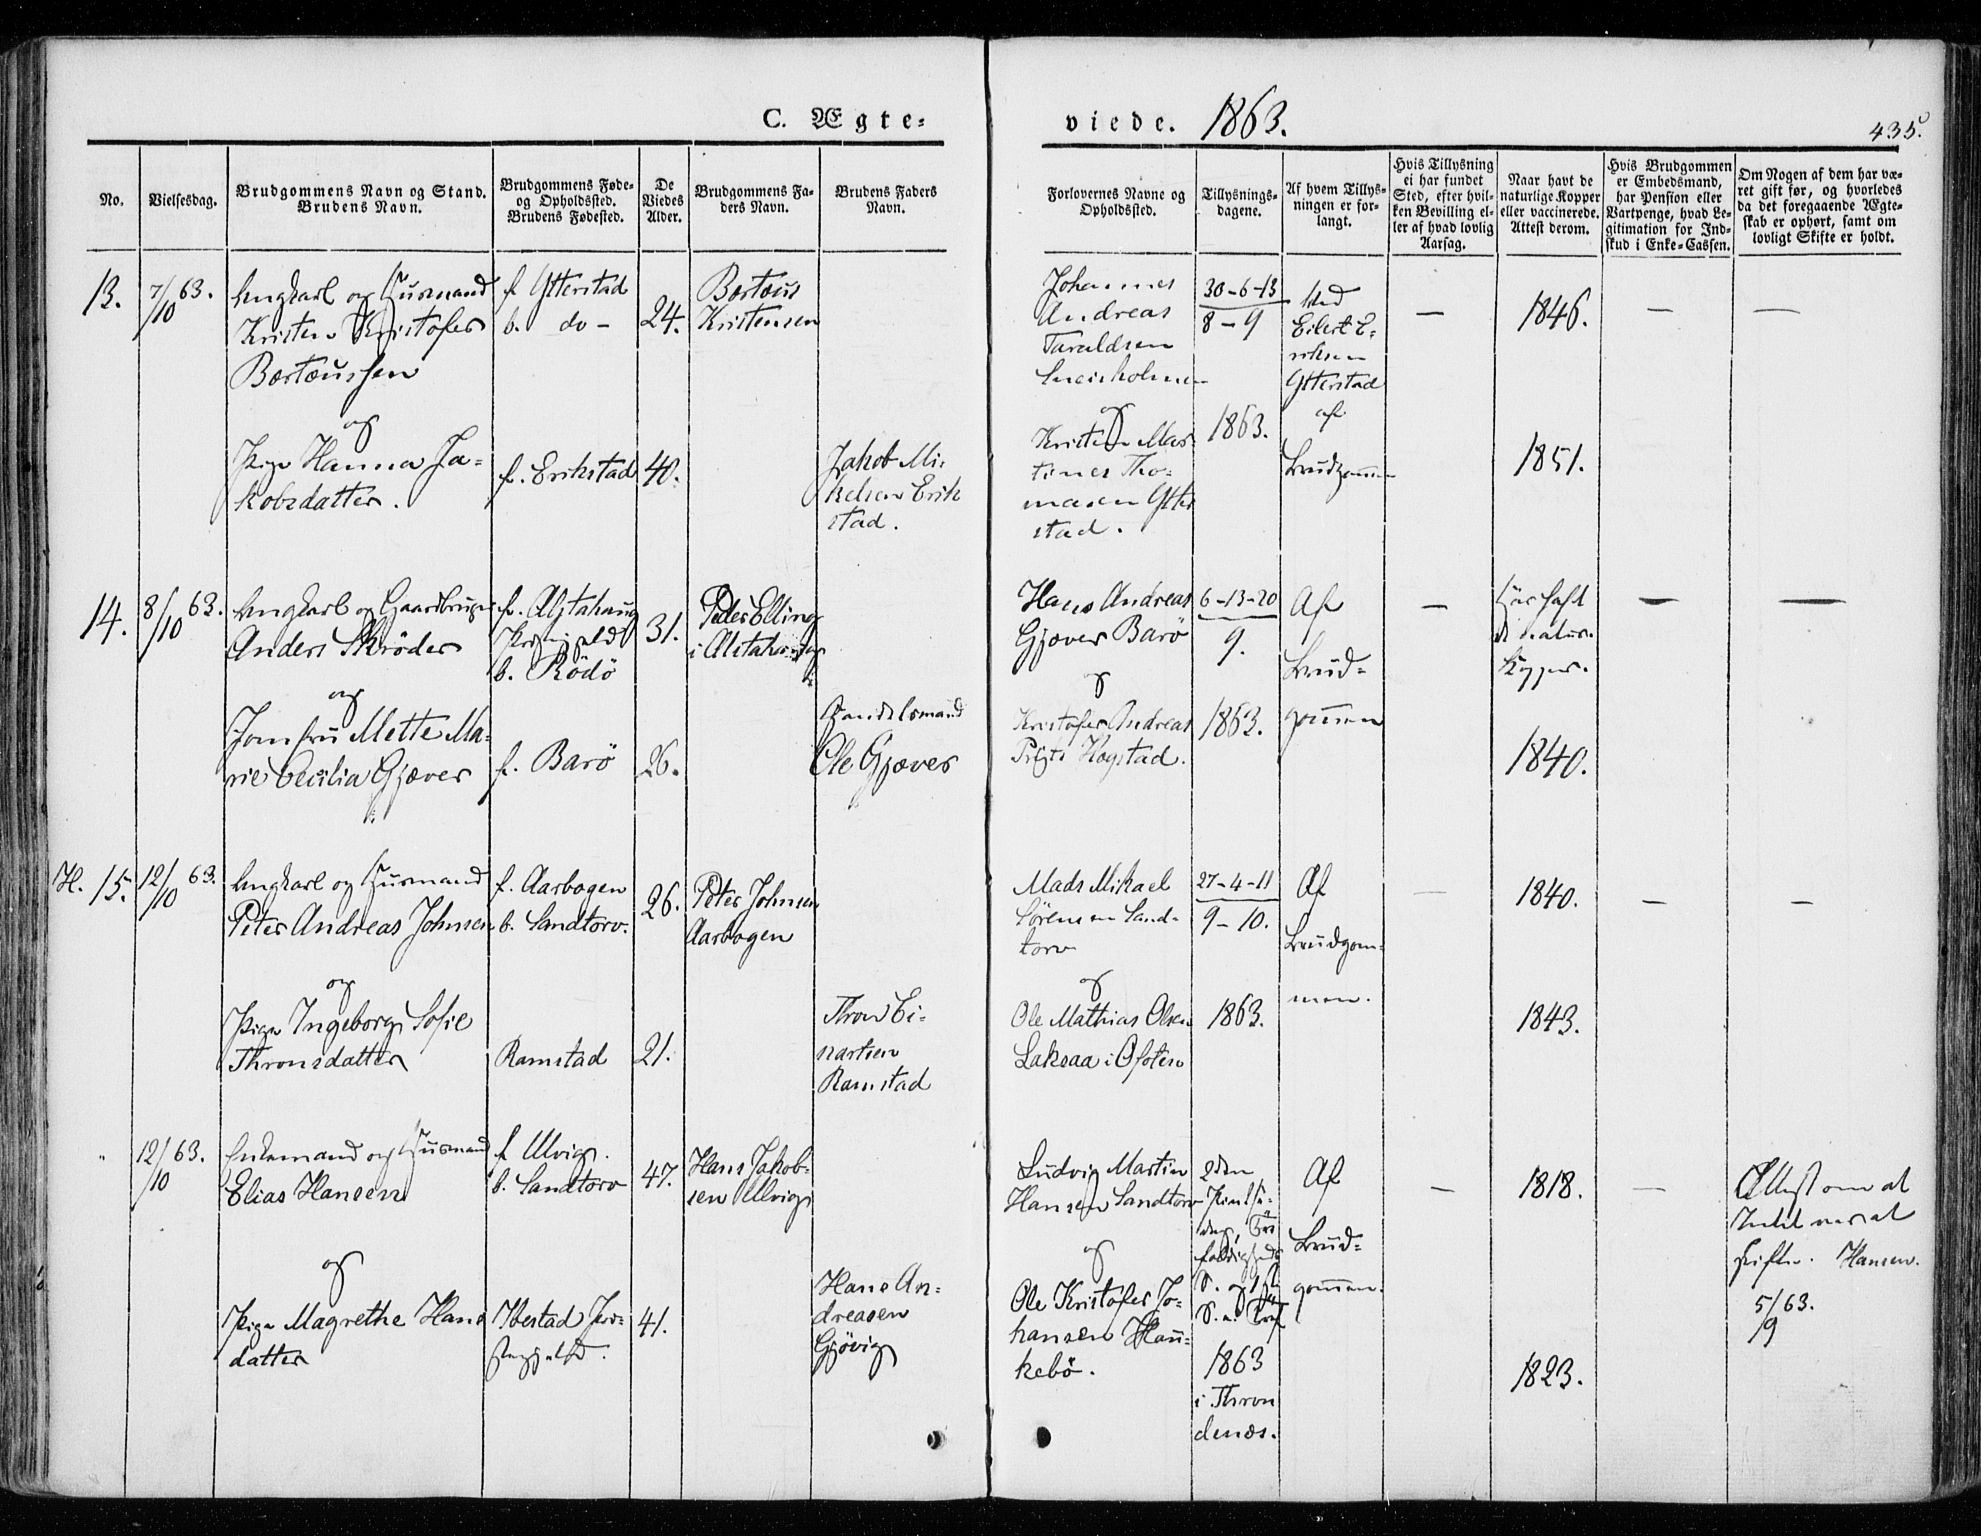 C. Ægte-
viede. 1863.
435.
No.
Vielsesdag.
Brudgommens Navn og Stand.
Brudens Navn.
Brudgommens Føde-
og Opholdssted.
Brudens Fødested.
De
Viedes
Alder.
Brudgommens Fa-
ders Navn.
Brudens Faders
Navn.
Forlovernes Navne og
Opholdssted.
Tillysnings-
dagene.
Af hvem Tillys-
ningen er for-
langt.
Hvis Tillysning
ei har fundet
Sted, efter hvil-
ken Bevilling el-
ler af hvad lovlig
Aarsag.
Naar havt de
naturlige Kopper
eller vaccinerede.
Attest derom.
Hvis Brudgommen
er Embedsmand,
har Pension eller
Vartpenge, hvad Le-
gitimation for Ind-
skud i Enke-Cassen.
Om Nogen af dem har væ-
ret gift før, og hvorledes
da det foregaaende Ægte-
skab er ophørt, samt om
lovligt Skifte er holdt.
13.
7/10 63.
Ungkarl og Husmand
Kristen Kristofer
Berteussen
og
Pige Hanna Ja-
kobsdatter.
f. Ytterstad
b. do -
f. Erikstad
24.
40.
Berteus
Kristensen
Jakob Mi-
kelsen Erik
stad.
Johannes
Andreas
Taraldsen
og
Kristen Mar
tines Tho-
masen Ytter
stad.
30-6-13
8-9
1863.
Ved
Eilert E-
riksen
Ytterstad
af
Brudgommen
—
1846.
1851.
—
—
14.
8/10 63.
Ungkarl og Gaardbruger
Anders Skrøder
og
Jomfru Mette Ma-
rie Cecilia Gjæver
f. Alstahaug
Præstegjeld
b. Rødø
f. Barø
31.
26.
Peder Elling
i Alstahaug
Handelsmand
Ole Gjæver
Hans Andreas
Gjæver Barø
og
Kristofer Andreas
Hogstad.
6-13-20
9.
1863.
Af
Brud-
gommen
—
Har haft
de natur.
Kopper.
1840.
—
—
H. 15.
12/10 63.
Ungkarl og Husmand
Peter Andreas Johnsen
og
Pige Ingeborg Sofie
Thronsdatter
f. Aarbogen
b. Sandtorv.
Ramstad
26.
21.
Peter Johnsen
Aarbogen
Thron Ei-
nartsen
Ramstad
Mads Mikael
Sørensen Sand-
torv
og
Ole Mathias Olsen
Laksaa i Ofoten
27-4-11
9-10.
1863.
Af
Brudgom-
men.
—
1840.
1843.
—
—
"
12/10 63.
Enkemand og Husmand
Elias Hansen
og
Pige Magrethe Hans
datter
f. Ulvig.
b. Sandtorv
Ibestad Præ-
stegjeld.
47.
41.
Hans Jakob-
sen Ulvig
Hans An-
dreasen
Gjøvig
Ludvig Martin
Hansen Sandtorv
og
Ole Kristofer Jo-
hansen Hau-
kebø.
2den
Pintse-
dag, Tre
foldigheds
S. og 1ste
S. e. Tref
1863
i Thron
denæs.
Af
Brud-
gommen.
—
1818.
1823.
—
Attest om at
Intet var at
skifte. Hansen.
5/9 63.